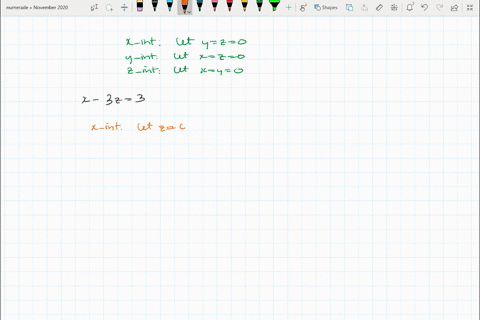 numerade » November 2020
Shapes
x-int: Let y=z=0
y-int: Let x=z=0
z-int: Let x=y=0
x - 3z = 3
x-int: Let z= c